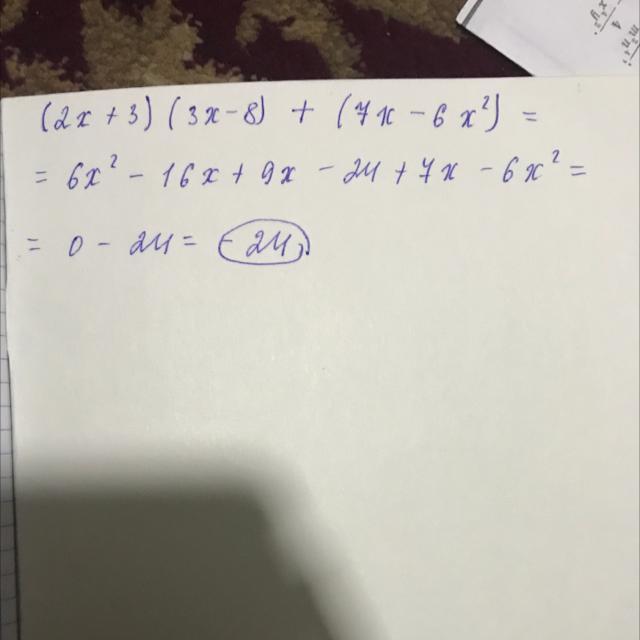 (2x + 3) (3x - 8) + (7x - 6x²) =
= 6x² - 16x + 9x - 24 + 7x - 6x² =
= 0 - 24 = -24.